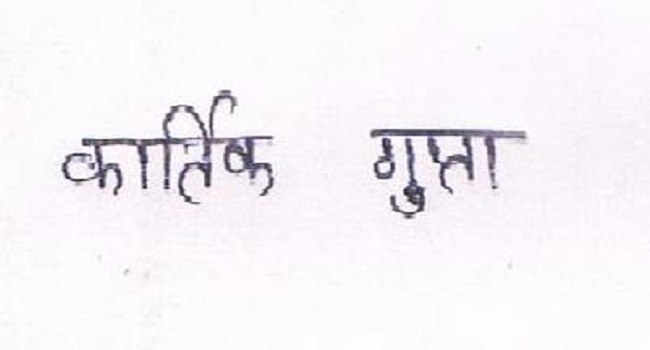 कार्तिक गुप्ता